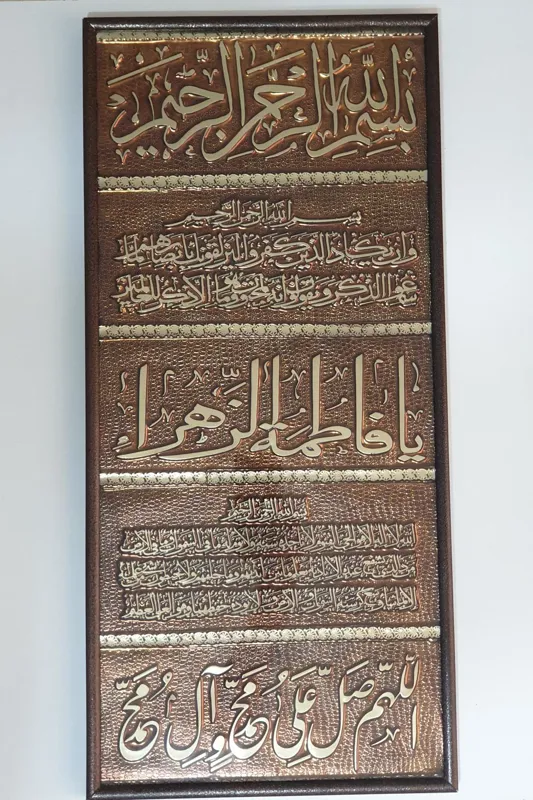 بسم الله الرحمن الرحيم
بسم الله الرحمن الرحيم
وان يكاد الذين كفروا ليزلقونك بابصارهم لما
سمعوا الذكر و يقولون انه لمجنون وما هو الا ذكر للعالمين
یا فاطمة الزهرا
بسم الله الرحمن الرحيم
الله لا اله الا هو الحي القيوم لا تاخذه سنة ولا نوم له ما في السموات وما في الارض
من ذا الذي يشفع عنده الا باذنه يعلم ما بين ايديهم وما خلفهم ولا يحيطون بشيء من علمه
الا بما شاء وسع كرسيه السموات و الارض ولا يوده حفظهما وهو العلي العظيم
اللّهم صَلّ عَلی مُحمّد وآل مُحمّد